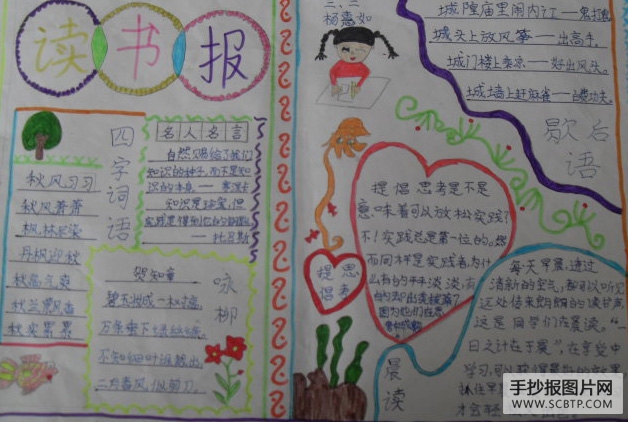 读书报
三、二
杨嘉如
城隍庙里闹内讧——鬼打鬼
城头上放风筝——出高手
城门楼上乘凉——好出风头
城墙上赶麻雀——白费功夫
歇后语
四字词语
秋风习习
秋风萧萧
枫林尽染
丹枫迎秋
秋高气爽
秋兰飘香
秋实累累
名人名言
自然赐给了我们
知识的种子,而不是知
识的本身——塞涅卡
知识是珍宝,但
实践是得到它的钥匙
贺知章
咏柳
碧玉妆成一树高,
万条垂下绿丝绦。
不知细叶谁裁出,
二月春风似剪刀。
提倡思考
提倡思考是不是
意味着可以放松实践?
不!实践总是第一位的。然
而同样是实践者为什
么有的平平淡淡,有
的却出类拔萃?
因为他们在思
晨读
每天早晨,透过
清新的空气,都可以听见
这是同学们在晨读。“一
日之计在于晨”,在享受中
手抄报图片网
www.SCBTP.com